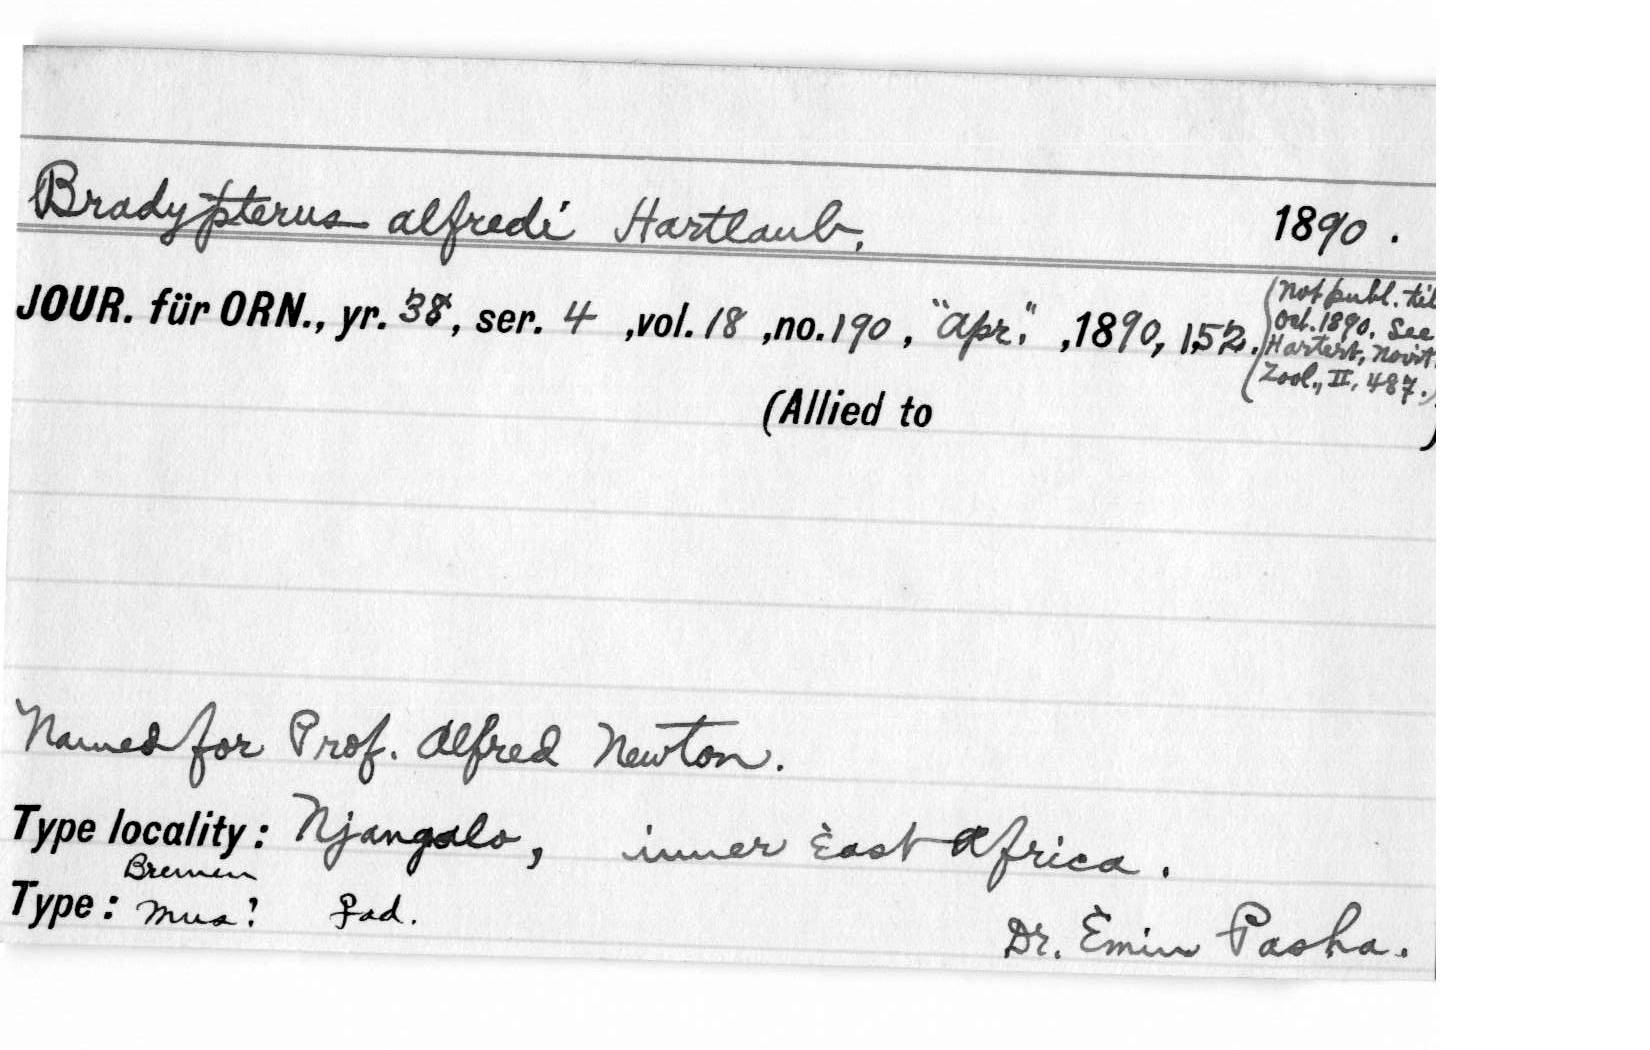 Bradypterus alfredi Hartlaub, 1890.
JOUR. für ORN., yr. 38, ser. 4 ,vol. 18 ,no. 190 , "Apr." ,1890, 152.
(Not publ. til
Oct. 1890. See
Hartert, Novit.
Zool., II, 487.)
(Allied to )
Named for Prof. Alfred Newton.
Type locality: Njangalo, inner East Africa.
Bremen
Type: Mus! ad.
Dr. Emin Pasha.